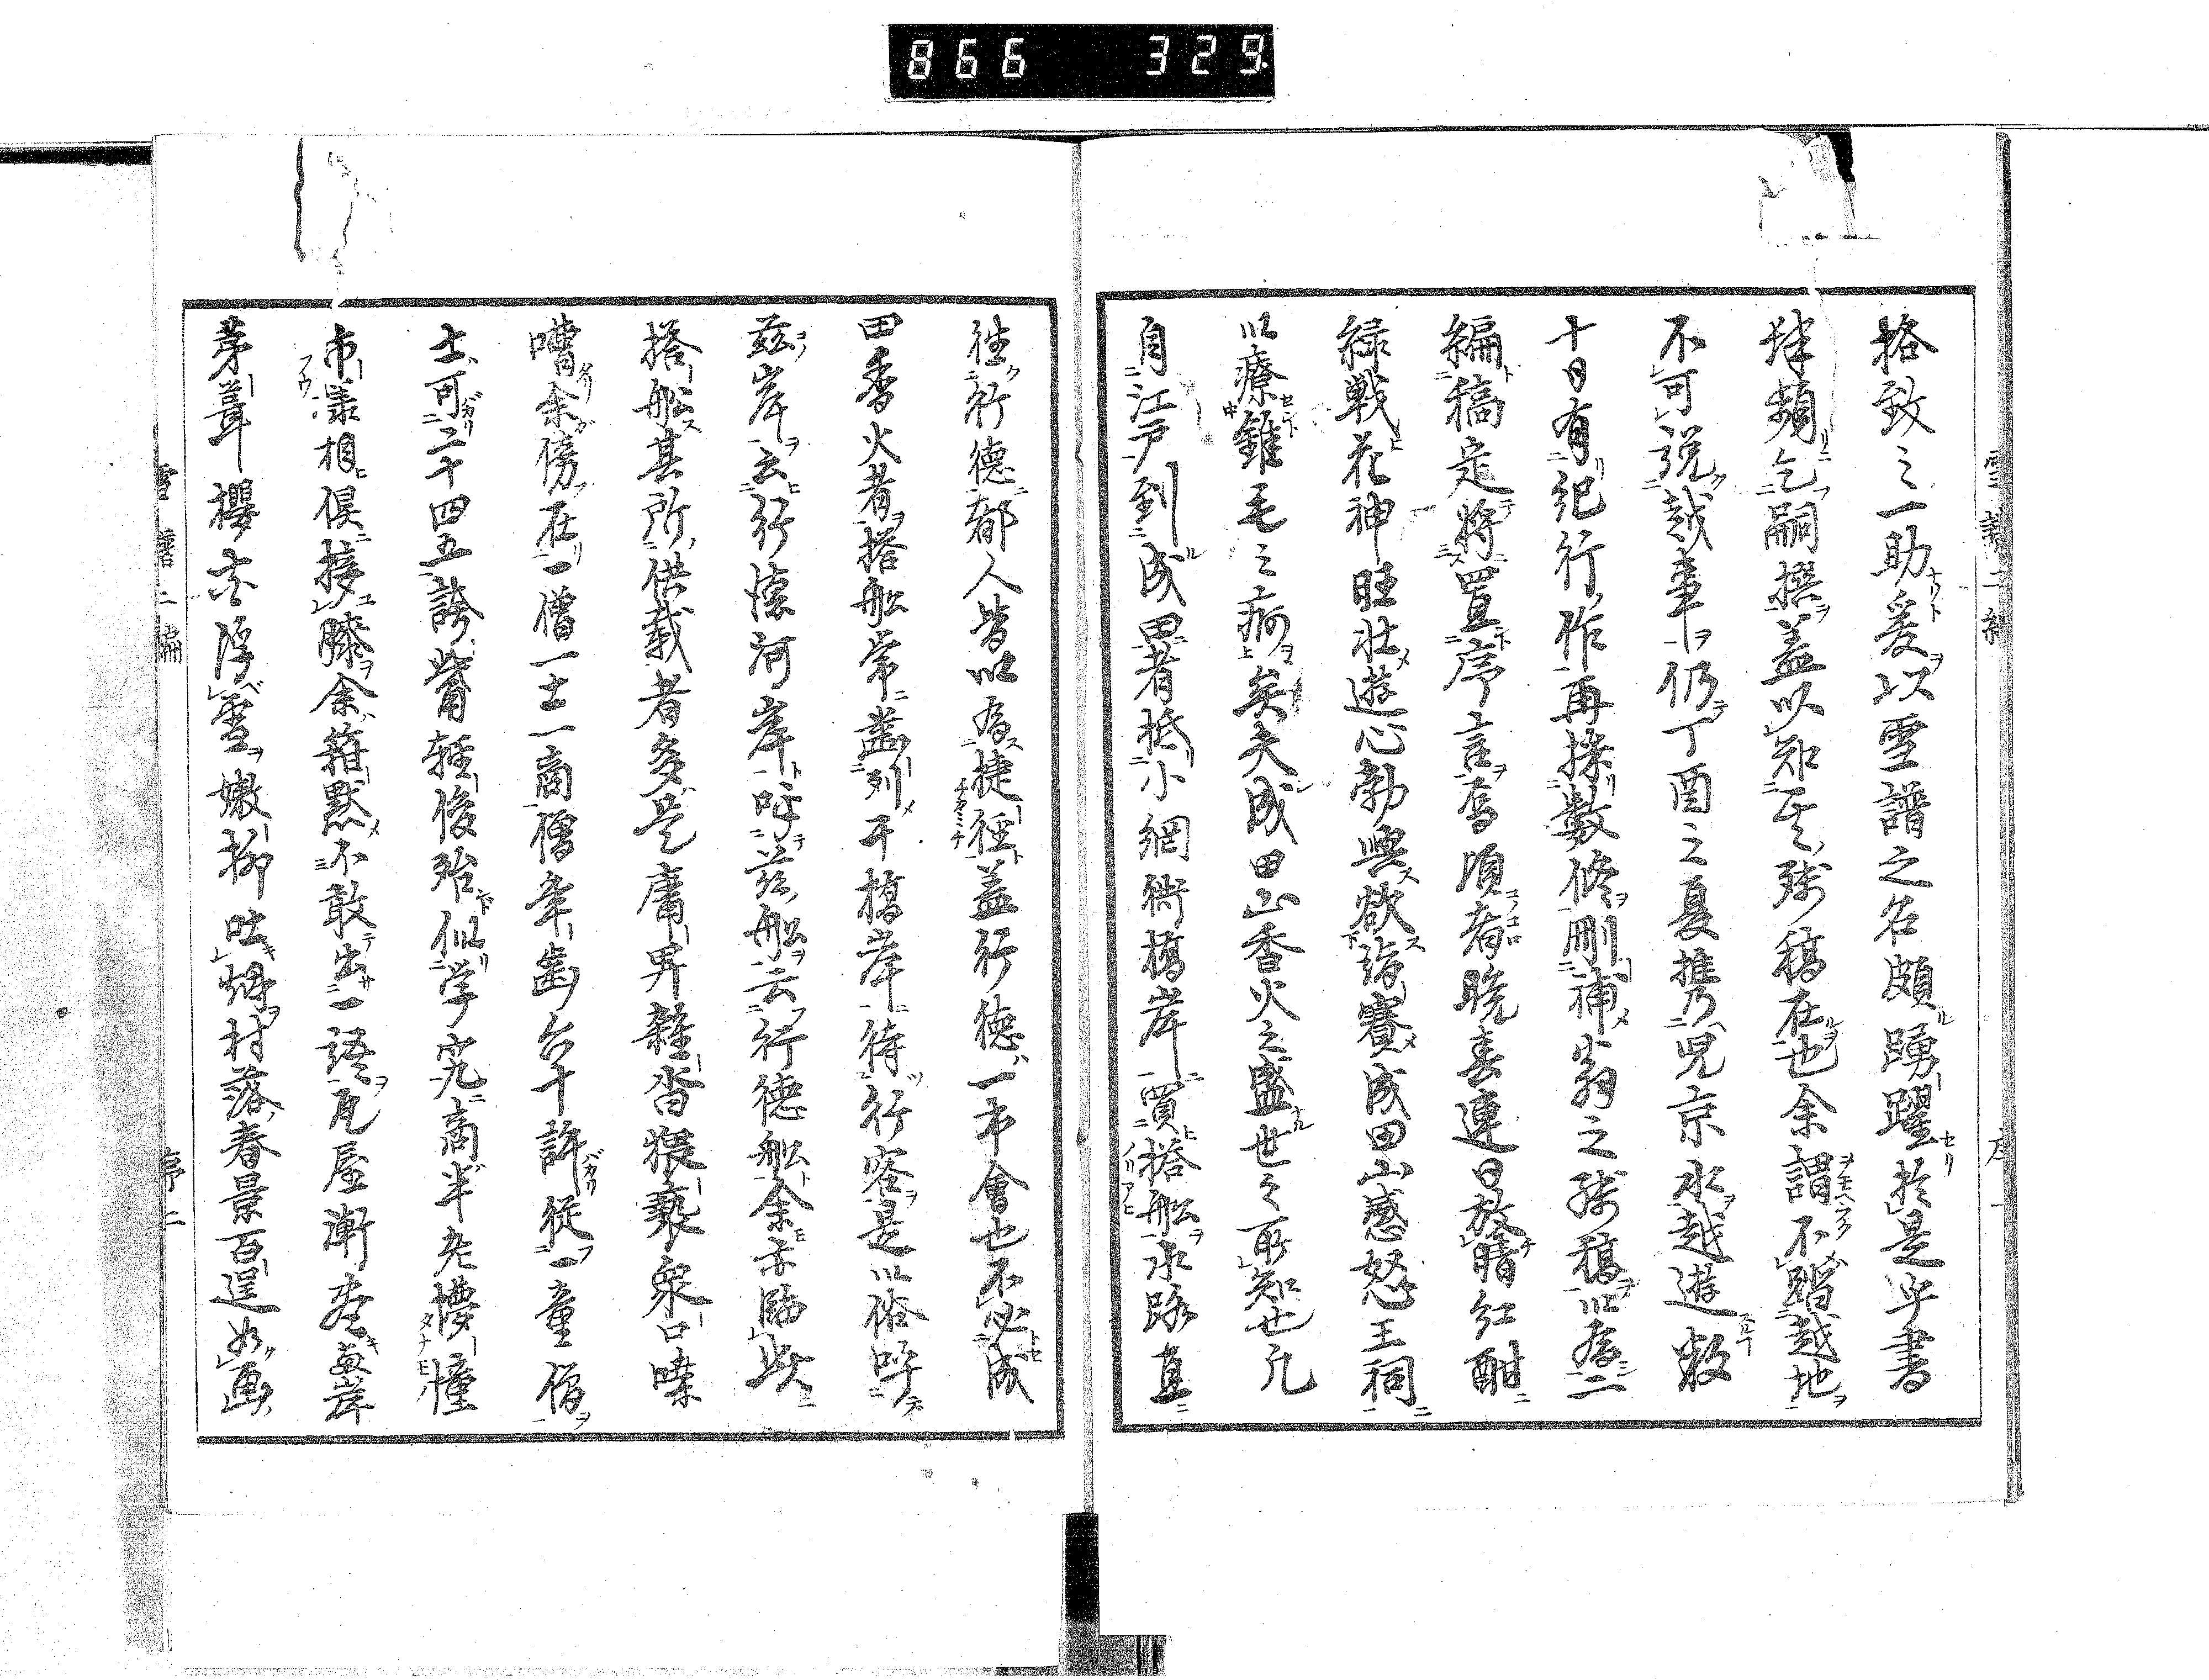 866 329
格致之一助爰以雪譜之名頗踴躍於是乎書
肆頻乞嗣撰蓋以知其残稿在也余謂不踏越地
不可説越事仍丁酉之夏携児京水越遊数
十日有紀行作再採数條刪補翁之残稿以為二
編稿定将置序言焉頃者晩春連日放晴紅酣
緑戦花神旺壮遊心勃興欲詣賽成田山感怒王祠
以療錐毛之痾矣夫成田山香火之盛世之所知也凡
自江戸到成田者抵小網街橋岸買搭舩水路直
徃行徳都人皆以為捷徑蓋行徳一市會也不必成
田香火者搭舩常艤列于橋岸待行客是以俗呼
茲岸云行徳河岸呼茲舩云行徳舩余亦臨此
搭舩其所供載者多是庸男雑沓猥褻衆口喋
嘈余傍在一僧一士一商僧年歯合十許従一童僧
士可二十四五誇觜軽俊殆似学究商半老摟憧
市漾相倶接膝余箝黙不敢出一語瓦屋漸尽両岸
茅葺櫻亦浮雪嫩柳吐烟村落春景百逞如画
雪譜二編 序一
雪譜二編 序二